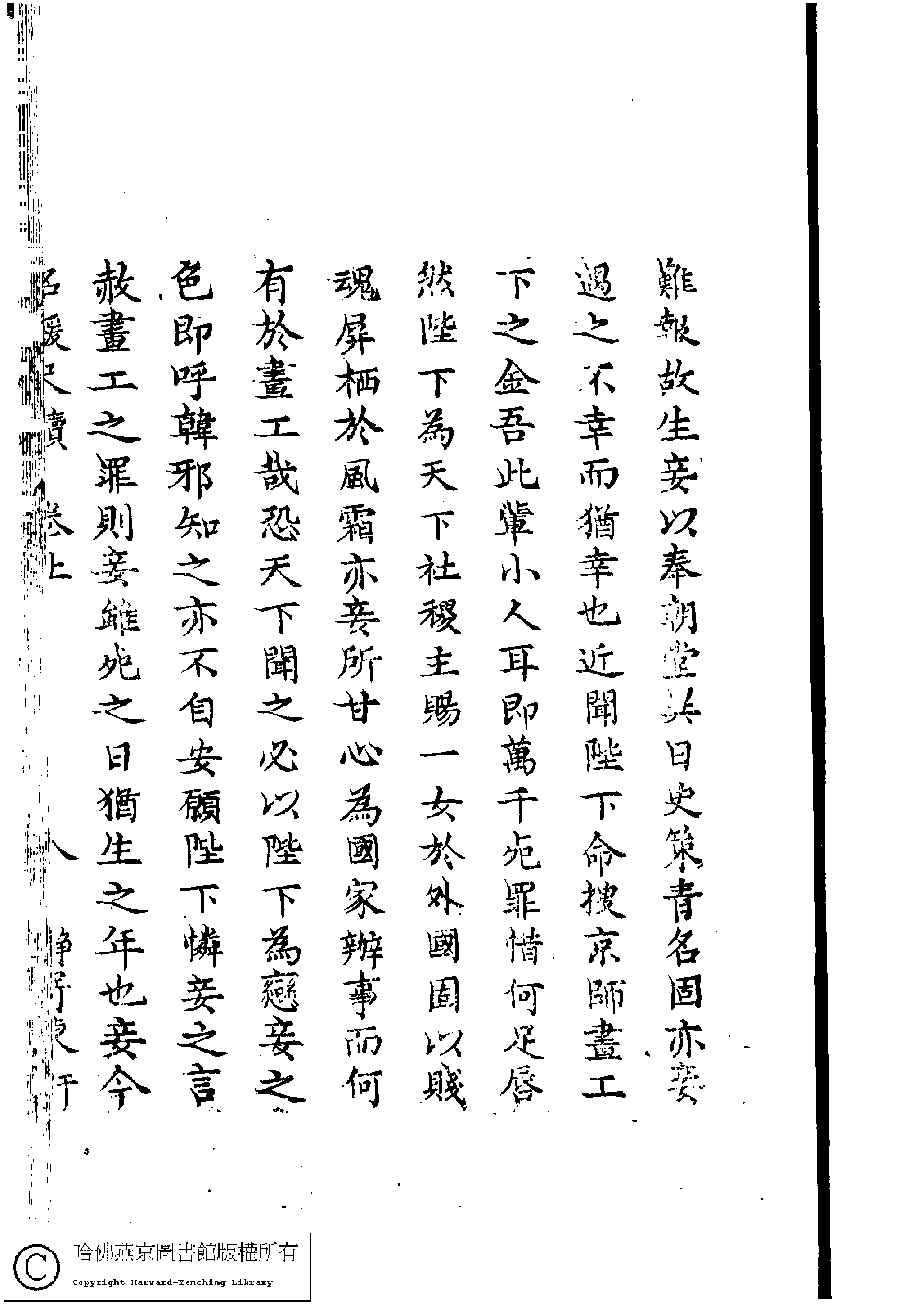 難報故生妾以奉朝堂共日史策青名固亦妾
遇之不幸而猶幸也近聞陛下命搜京師畫工
下之金吾此輩小人耳即萬千死罪惜何足唇
然陛下為天下社稷主賜一女於外國固以賤
魂屏栖於風霜亦妾所甘心為國家辦事而何
有於畫工哉恐天下聞之必以陛下為戀妾之
色即呼韓邪知之亦不自安願陛下憐妾之言
赦畫工之罪則妾雖死之日猶生之年也妾今
名媛尺牘 卷上 靜寄東軒
哈佛燕京圖書館版權所有
Copyright Harvard-Yenching Library